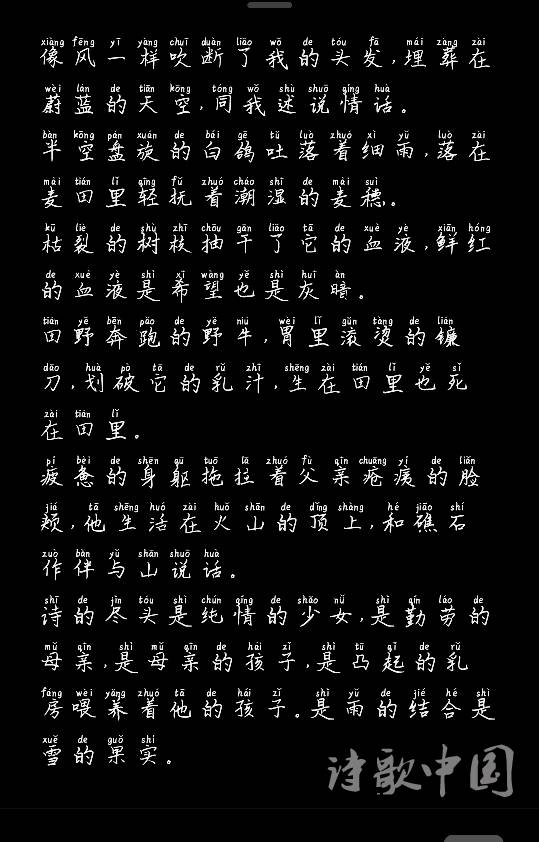 xiàng fēng yī yàng chuī duàn liǎo wǒ de tóu fā mái zàng zài
像风一样吹断了我的头发,埋葬在
wèi lán de tiān kōng tóng wǒ shù shuō qíng huà
蔚蓝的天空,同我述说情话。
bàn kōng pán xuán de bái gē tǔ luò zhuó xì yǔ luò zài
半空盘旋的白鸽吐落着细雨,落在
mài tián lǐ qīng fǔ zhuó cháo shī de mài suì
麦田里轻抚着潮湿的麦穗。
kū liè de shù zhī chōu gān liǎo tā de xuè yè xiān hóng
枯裂的树枝抽干了它的血液,鲜红
de xuè yè shì xī wàng yě shì huī àn
的血液是希望也是灰暗。
tián yě bēn pǎo de yě niú wèi lǐ gǔn tàng de lián
田野奔跑的野牛,胃里滚烫的镰
dāo huà pò tā de rǔ zhī shēng zài tián lǐ yě sǐ
刀,划破它的乳汁,生在田里也死
zài tián lǐ
在田里。
pí bèi de shēn qū tuō lā zhuó fù qīn chuāng yí de liǎn
疲惫的身躯拖拉着父亲疮痍的脸
jiá tā shēng huó zài huǒ shān de dǐng shàng hé jiāo shí
颊,他生活在火山的顶上,和礁石
zuò bàn yǔ shān shuō huà
作伴与山说话。
shī de jìn tóu shì chún qíng de shǎo nǚ shì qín láo de
诗的尽头是纯情的少女,是勤劳的
mǔ qīn shì mǔ qīn de hái zǐ shì tū qǐ de rǔ
母亲,是母亲的孩子,是凸起的乳
fáng wèi yǎng zhuó tā de hái zǐ shì yǔ de jié hé shì
房喂养着他的孩子。是雨的结合是
xuě de guǒ shí
雪的果实。
诗歌中国